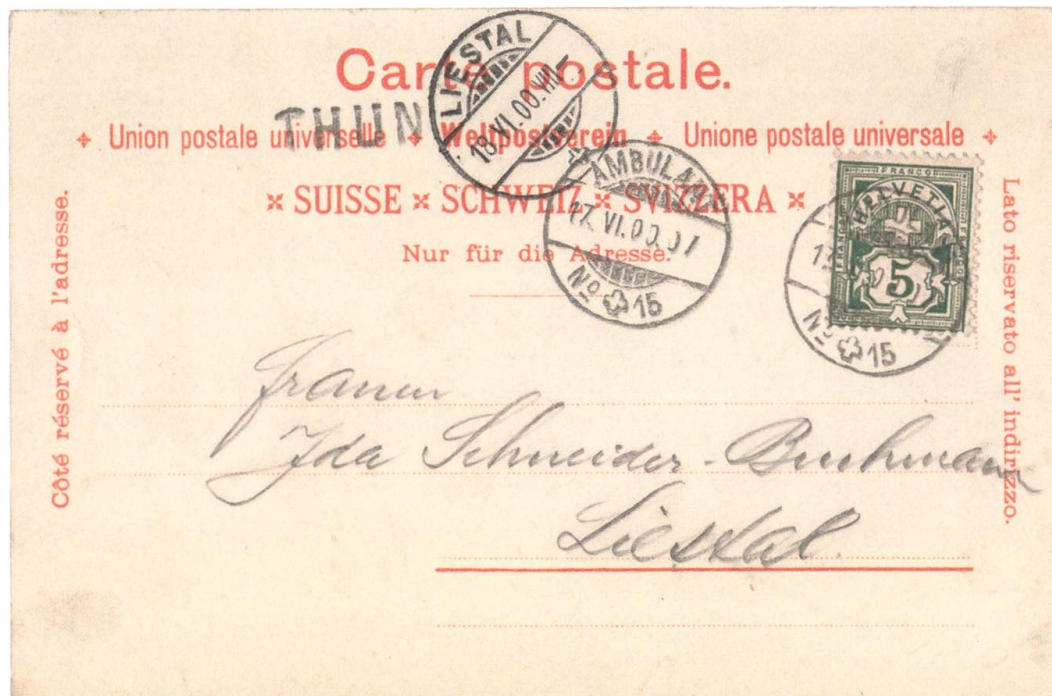 Carte postale.
THUN
LIESTAL
18.VI.00.VIII-
✦ Union postale universelle ✦ Weltpostverein ✦ Unione postale universale ✦
× SUISSE × SCHWEIZ × SVIZZERA ×
Nur für die Adresse.
AMBULANT
17.VI.00.
No 15
FRANCO
HELVETIA
5
No 15
Côté réservé à l'adresse.
Lato riservato all' indirizzo.
Ida Schneider-Buchmann
Liestal.